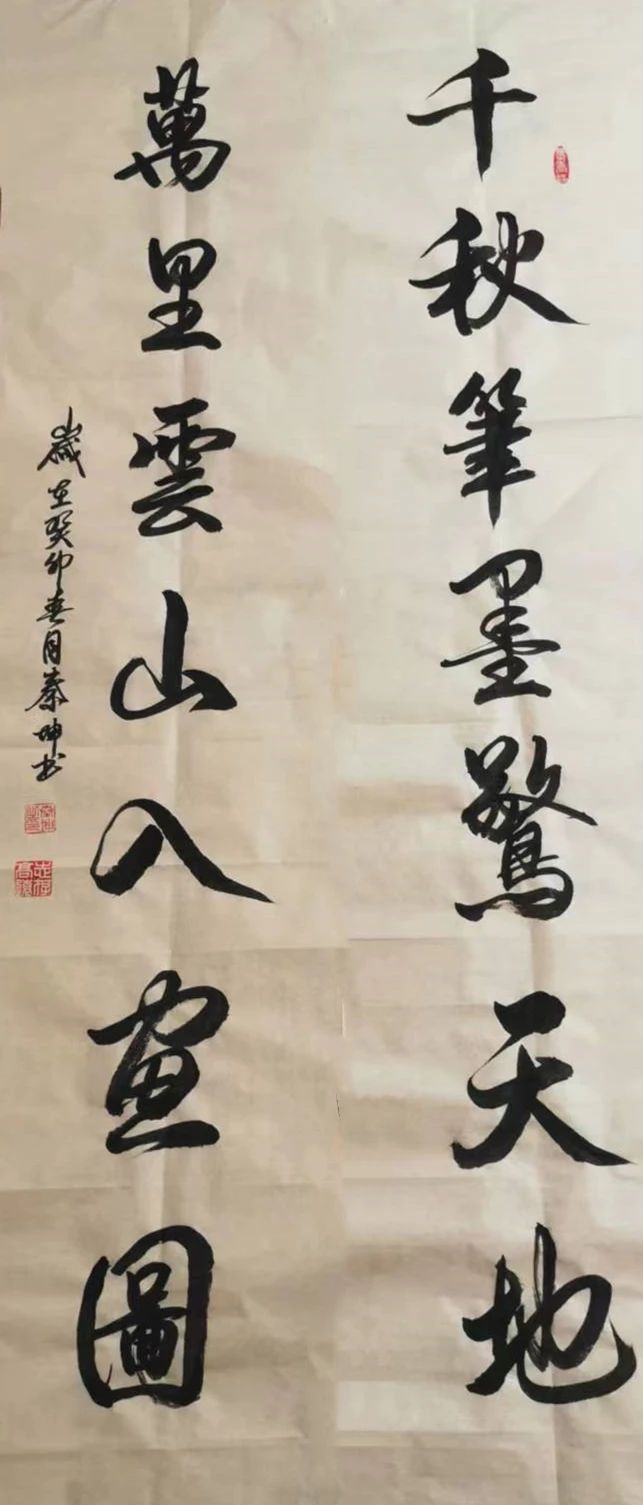 千秋筆墨驚天地
萬里雲山入畫圖
歲在癸卯春月秦坤书